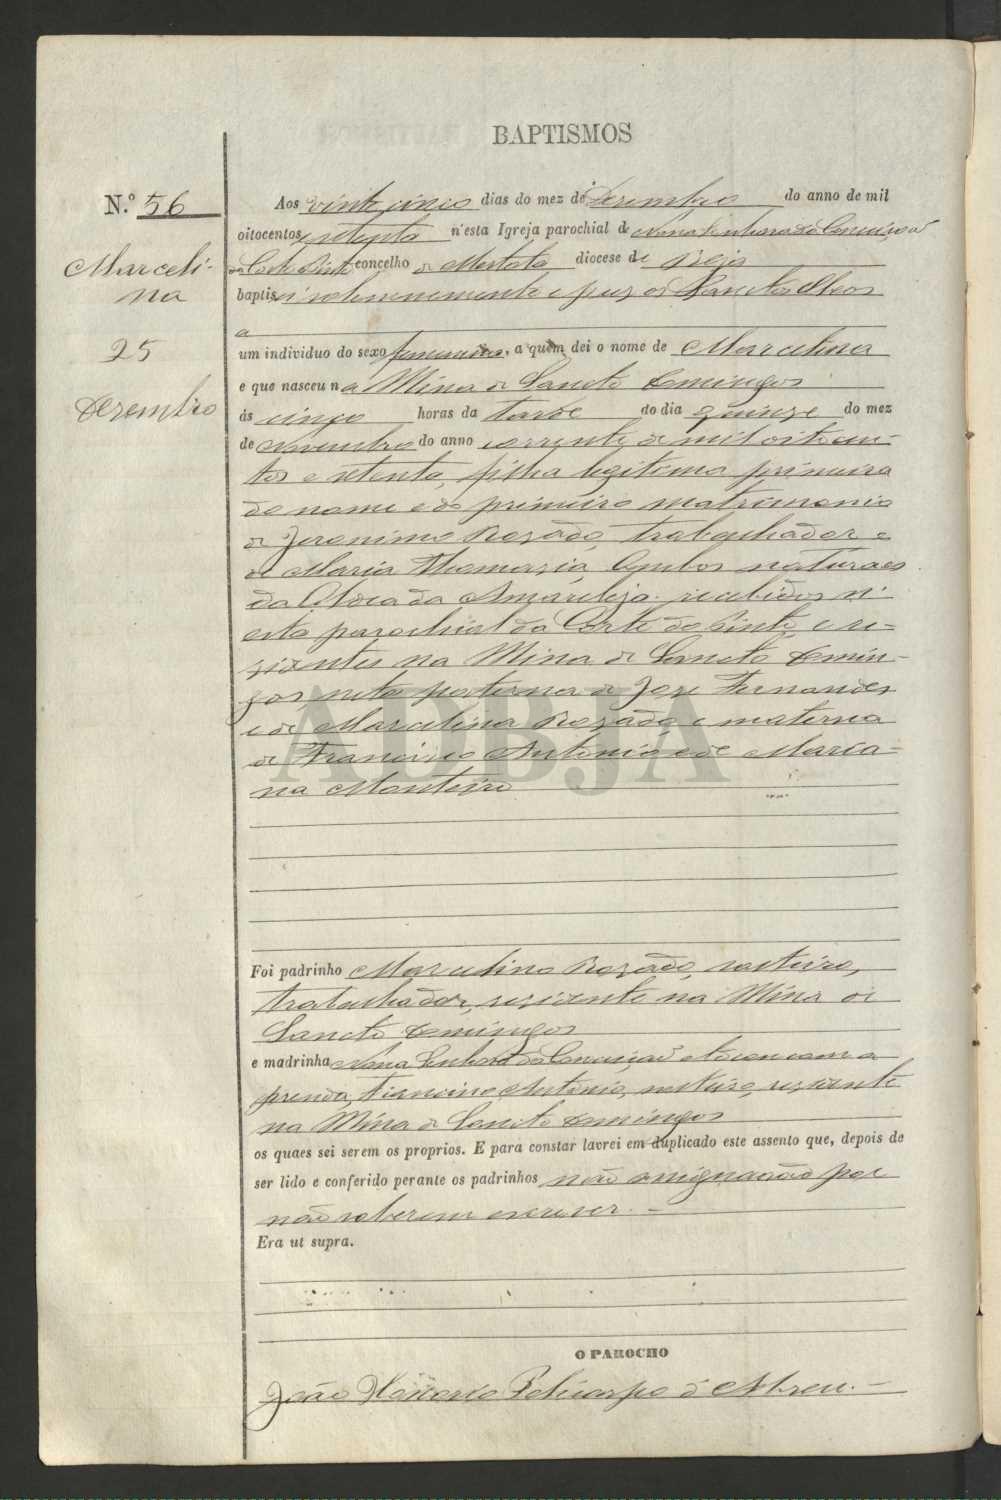 BAPTISMOS
N.º 56
Marceli-
na
25
Dezembro
Aos vinte cinco dias do mez de Dezembro do anno de mil
oitocentos setenta n'esta Igreja parochial de Nossa Senhora da Conceição
da Corte Pinto concelho de Mertola diocese de Beja
baptisei solemnemente e puz os Sanctos Oleos
a
um individuo do sexo femenino, a quem dei o nome de Marcelina
e que nasceu na Mina de Sancto Domingos
ás cinco horas da tarde do dia quinze do mez
de Novembro do anno corrente de mil oitocen-
tos e setenta, filha legitima primeira
do nome e do primeiro matrimonio
de Jeronimo Rozado, trabalhador e
de Maria Thomazia, Ambos naturaes
da Aldea da Amareleja recebidos n'
esta parochial da Corte do Pinto, e re-
zidentes na Mina de Sancto Domin-
gos, neta paterna de Joze Fernandes
e de Marcelina Rozado, e materna
de Francisco Antonio, e de Maria-
na Monteiro
ADBJA
Foi padrinho Marcelino Rozado, solteiro,
trabalhador, rezidente na Mina de
Sancto Domingos
e madrinha Nossa Senhora da Conceição e tocou com a
prenda, Francisco Antonio, solteiro, rezidente
na Mina de Sancto Domingos
os quaes sei serem os proprios. E para constar lavrei em duplicado este assento que, depois de
ser lido e conferido perante os padrinhos não assignarão por
não saberem escrever. —
Era ut supra.
O PAROCHO
João Honorio Policarpo d'Abreu. —